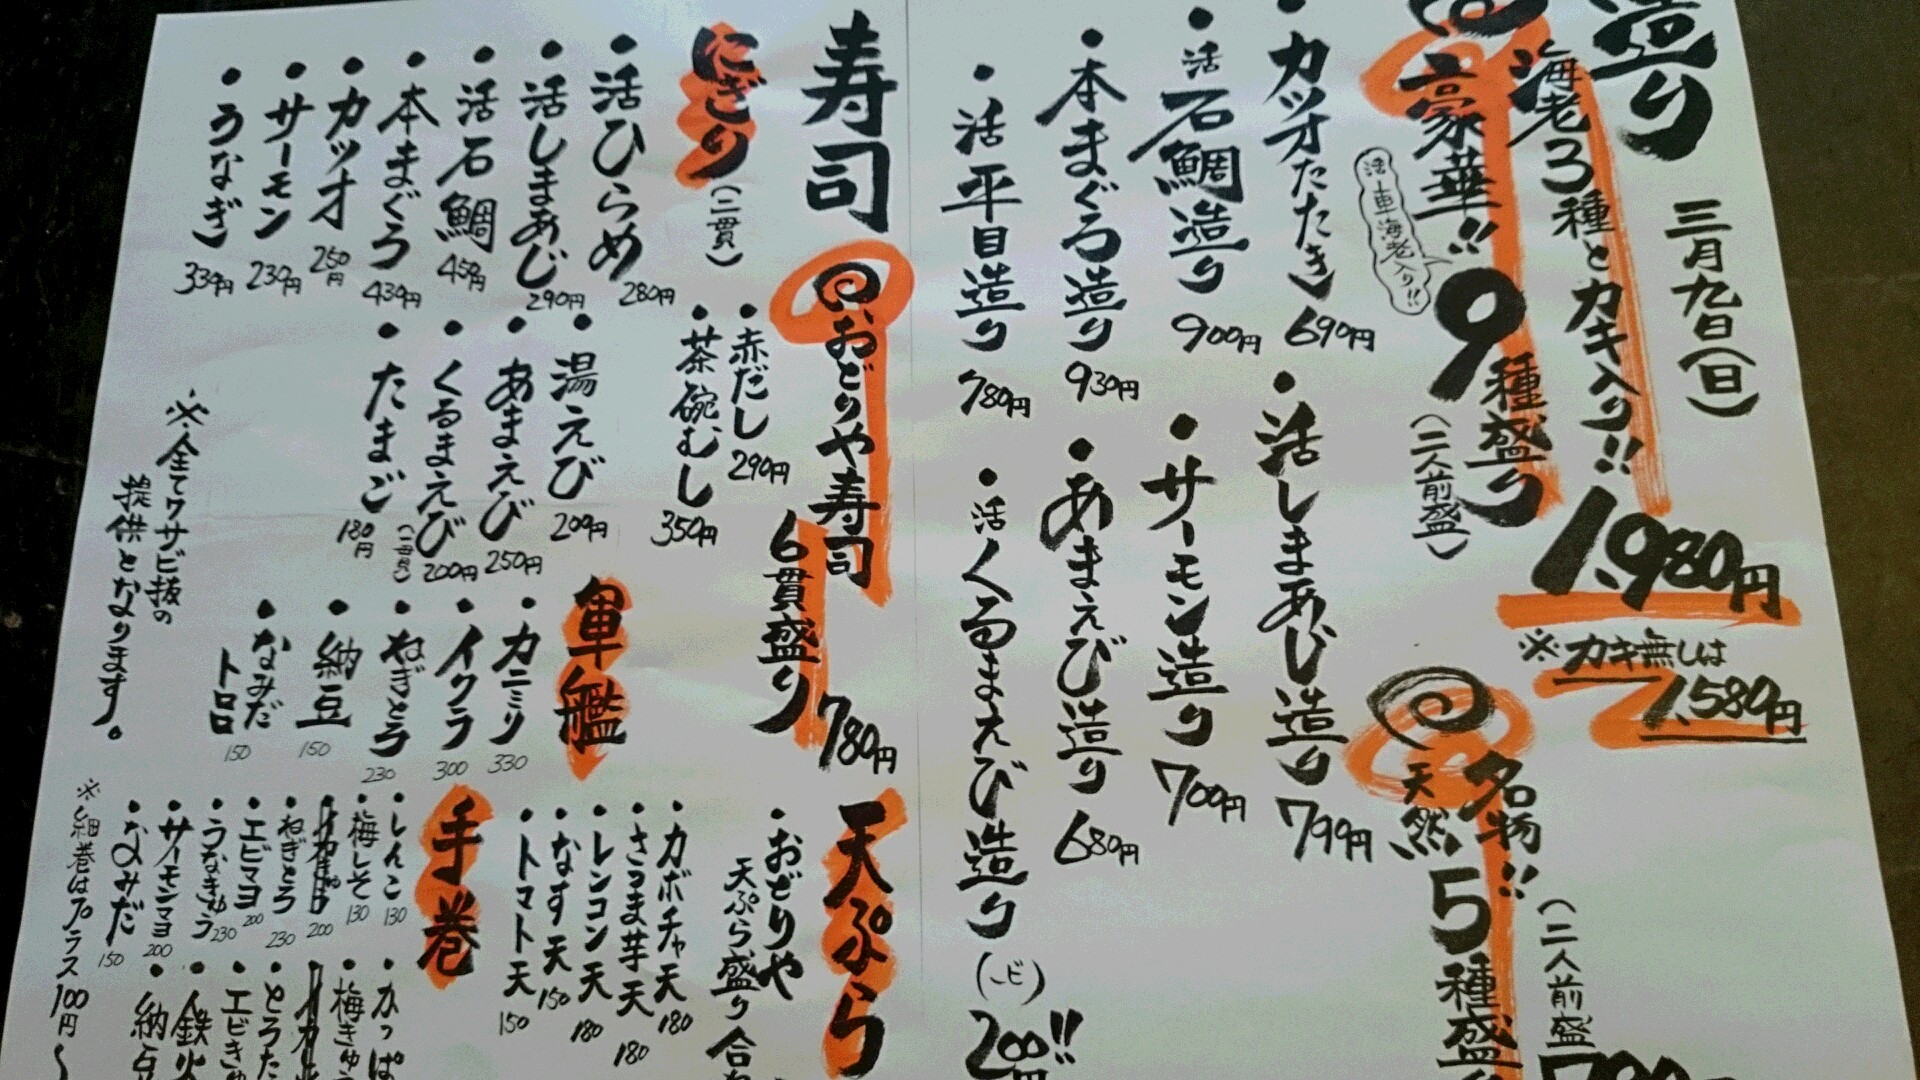 造り
三月九日(日)
海老3種とカキ入り!!
1,980円
※カキ無しは
1,580円
豪華!!
9種盛り
(二人前盛)
活車海老入り!!
名物!!
天然5種盛
(二人前盛
・カツオたたき 690円
・活しまあじ造り 799円
・活石鯛造り 900円
・サーモン造り 700円
・本まぐろ造り 930円
・あまえび造り 680円
・活平目造り 780円
・活くるまえび造り
200円!!
寿司
おどりや寿司
6貫盛り
780円
・赤だし 290円
・茶碗むし 350円
にぎり(二貫)
・活ひらめ 280円
・活しまあじ 290円
・活石鯛 450円
・本まぐろ 430円
・カツオ 250円
・サーモン 230円
・うなぎ 330円
・湯えび 200円
・あまえび 250円
・くるまえび(一貫) 200円
・たまご 180円
※全てワサビ抜の
提供となります。
軍艦
・カニミソ 330
・イクラ 300
・ねぎとろ 230
・納豆 150
・なみだ
トロロ 150
天ぷら
・おどりや
天ぷら盛り合
・カボチャ天 180
・さつま芋天 180
・レンコン天 180
・なす天 150
・トマト天 150
手巻
・しんこ 130
・梅しそ 130
200
・ねぎとろ 230
・エビマヨ 200
・うなきゅう 230
・サーモンマヨ 200
・なみだ 150
・かっぱ
・梅きゅう
・とろた
・エビきゅ
・鉄火
・納豆
※細巻はプラス100円〜